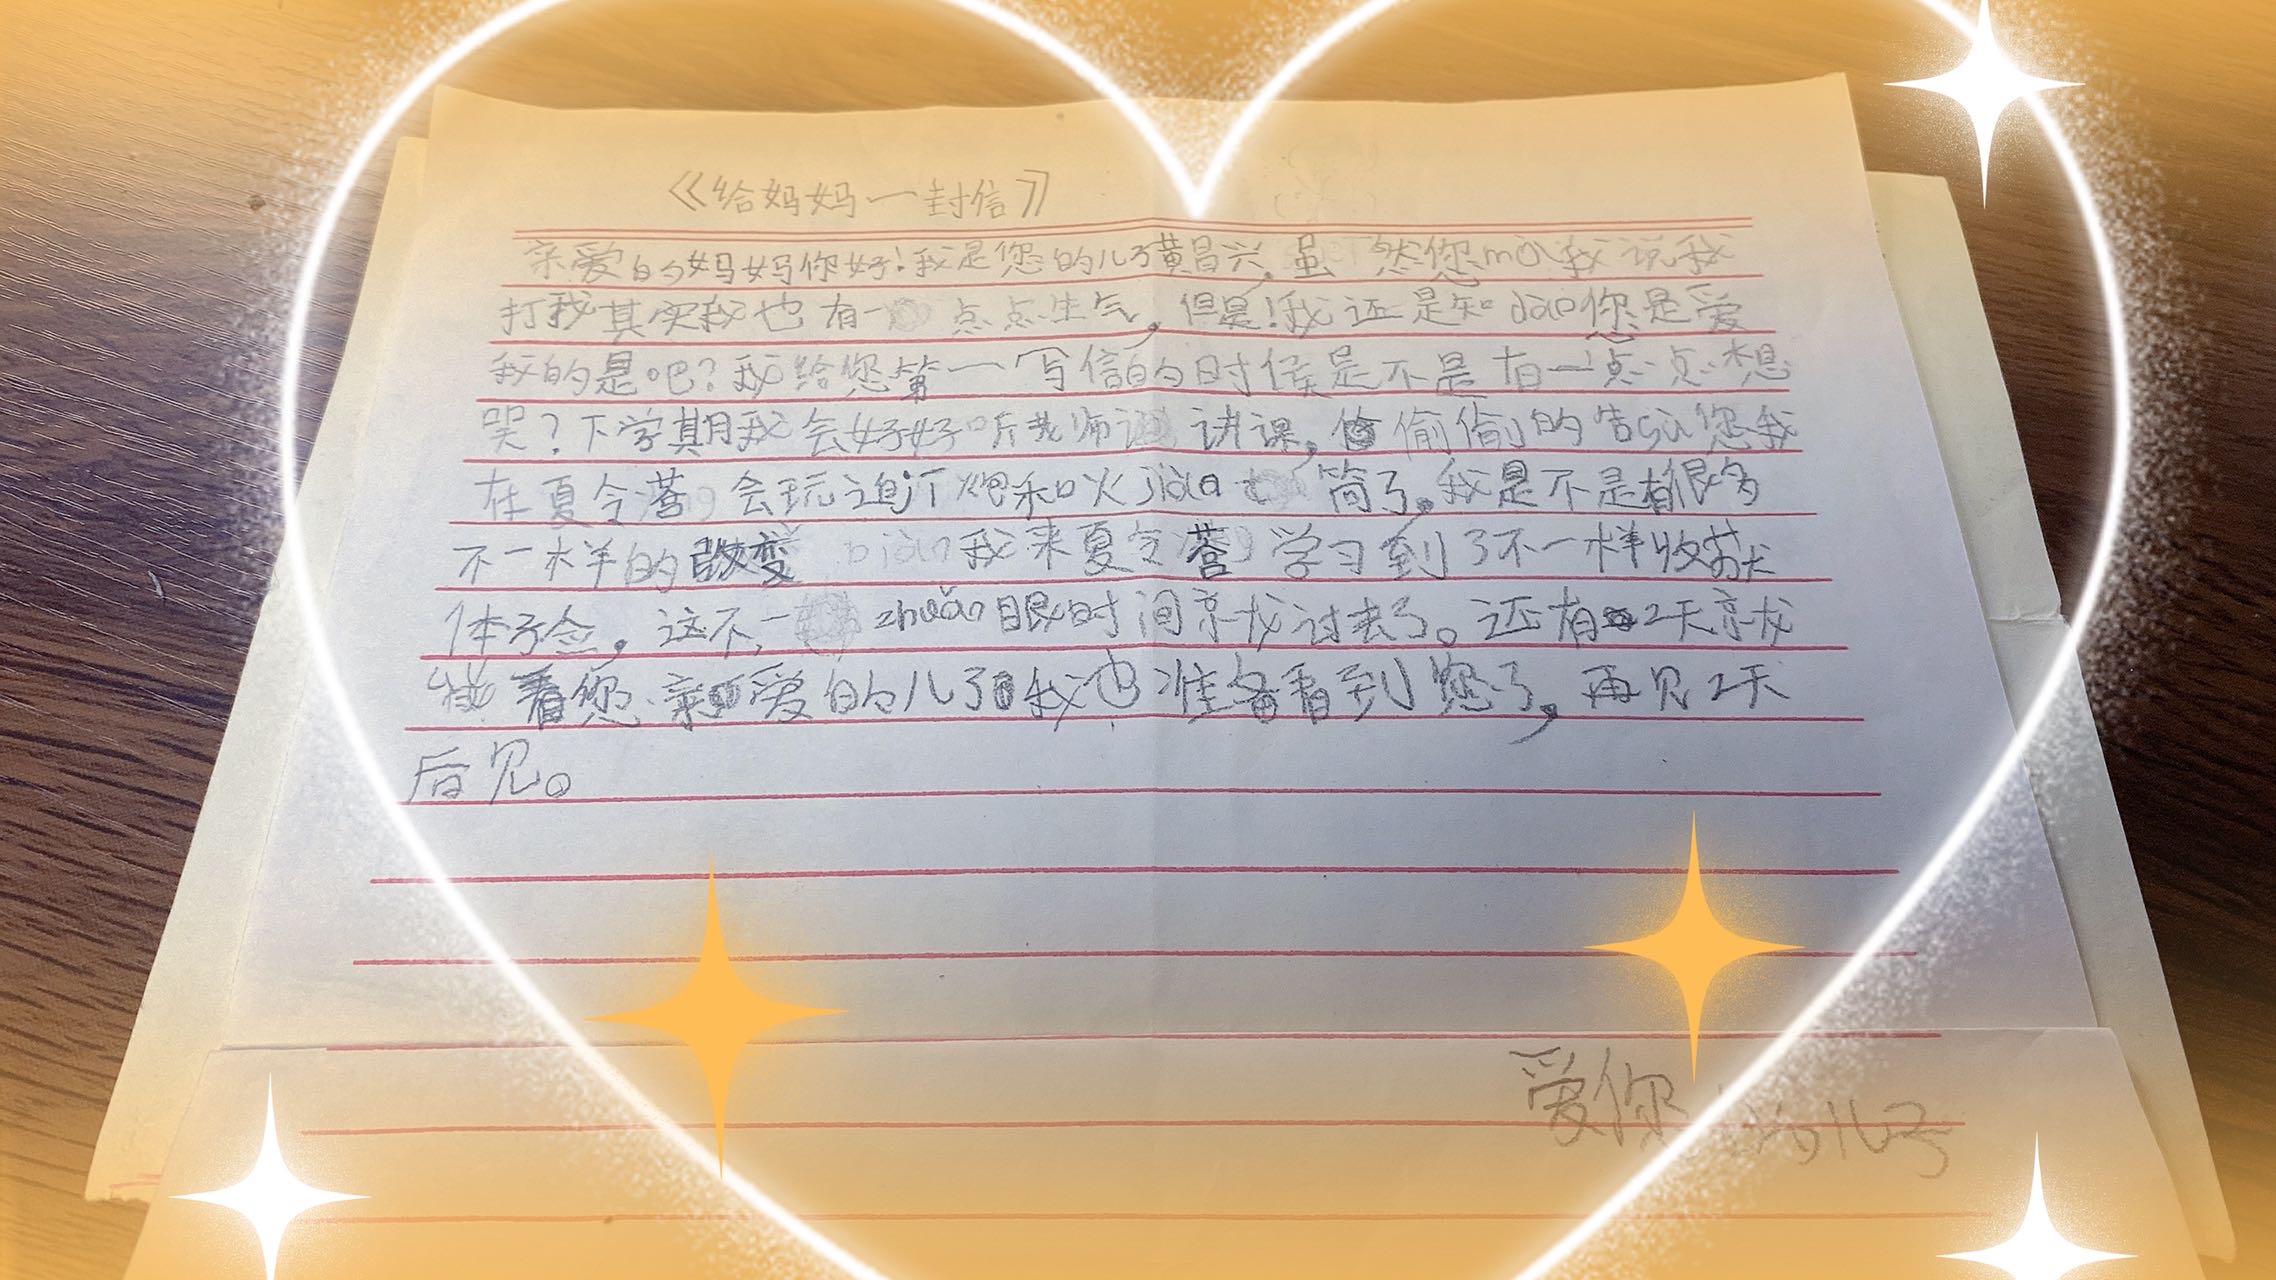 《给妈妈一封信》
亲爱的妈妈你好!我是您的儿子黄昌兴,虽然您mà我说我
打我其实我也有一点点生气,但是!我还是知dào您是爱
我的是吧?我给您第一写信的时候是不是有一点点想
哭?下学期我会好好听老师讲课,偷偷的告sù您我
在夏令营会玩迫击炮和火jiàn筒了。我是不是有很多
不一样的改变 biàn我来夏令营学习到了不一样收获
体验,这不一zhuǎn眼时间就过去了。还有2天就
我看您亲爱的儿子我也准备看到您了,再见2天
后见。
爱你的儿子